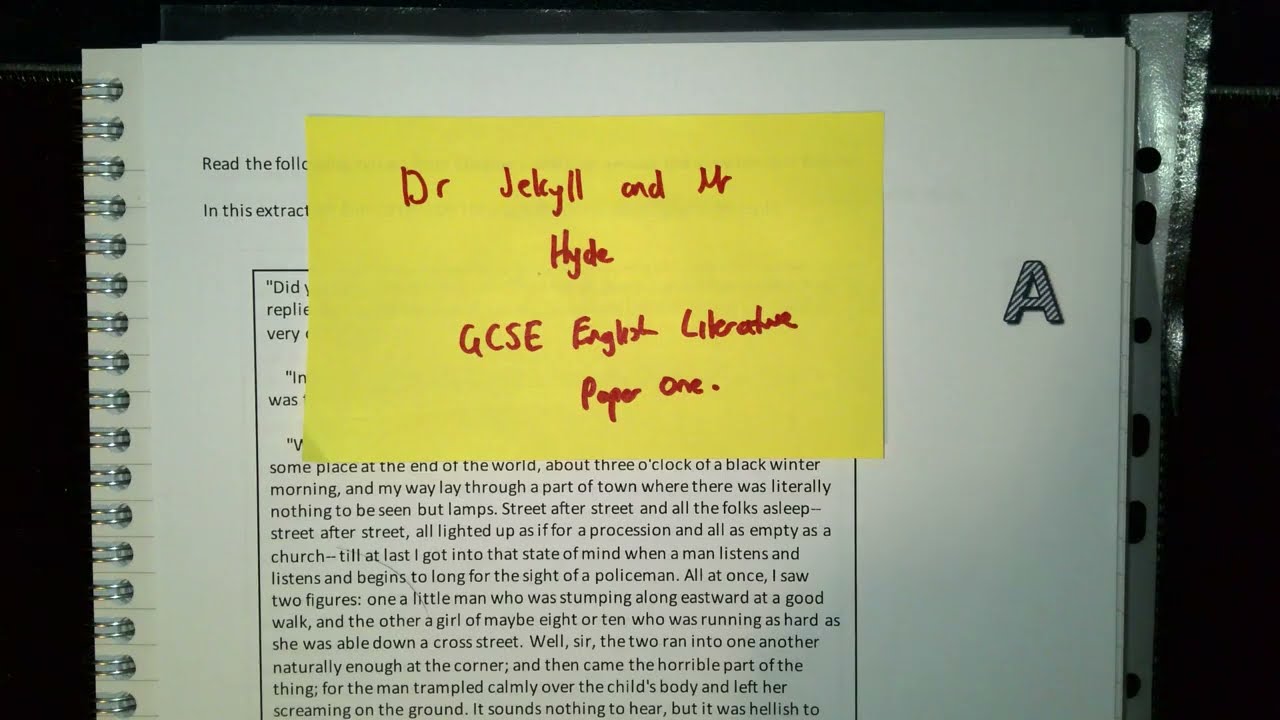 Read the follo
Dr Jekyll and Mr
In this extract
Hyde
A
"Did y
replie
GCSE English Literature
very
"In
Paper one.
was
"W
some place at the end of the world, about three o'clock of a black winter
morning, and my way lay through a part of town where there was literally
nothing to be seen but lamps. Street after street and all the folks asleep--
street after street, all lighted up as if for a procession and all as empty as a
church-- till at last I got into that state of mind when a man listens and
listens and begins to long for the sight of a policeman. All at once, I saw
two figures: one a little man who was stumping along eastward at a good
walk, and the other a girl of maybe eight or ten who was running as hard as
she was able down a cross street. Well, sir, the two ran into one another
naturally enough at the corner; and then came the horrible part of the
thing; for the man trampled calmly over the child's body and left her
screaming on the ground. It sounds nothing to hear, but it was hellish to